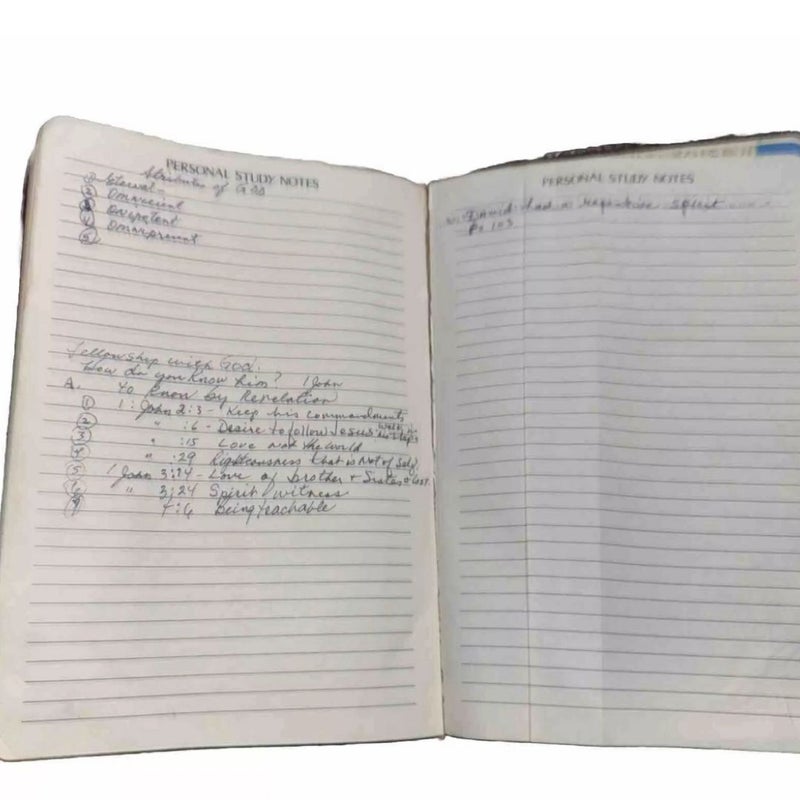 PERSONAL STUDY NOTES
Attributes of God
① Eternal
② Omnicient
③ Onipotent
⑤ Omnipresent
Fellowship with God.
How do you know him? 1 John
A. to know by Revelation
① 1: John 2:3 - Keep his commandments
② " :6 - Desire to follow Jesus walk in his steps
③ " :15 Love not the world
④ " :29 Righteousness that is not of Self
⑤ 1 John 3:14 - Love of brother + Sisters
" 3:24 Spirit witness
4:6 Being teachable
PERSONAL STUDY NOTES
David had a spirit
Ps 103